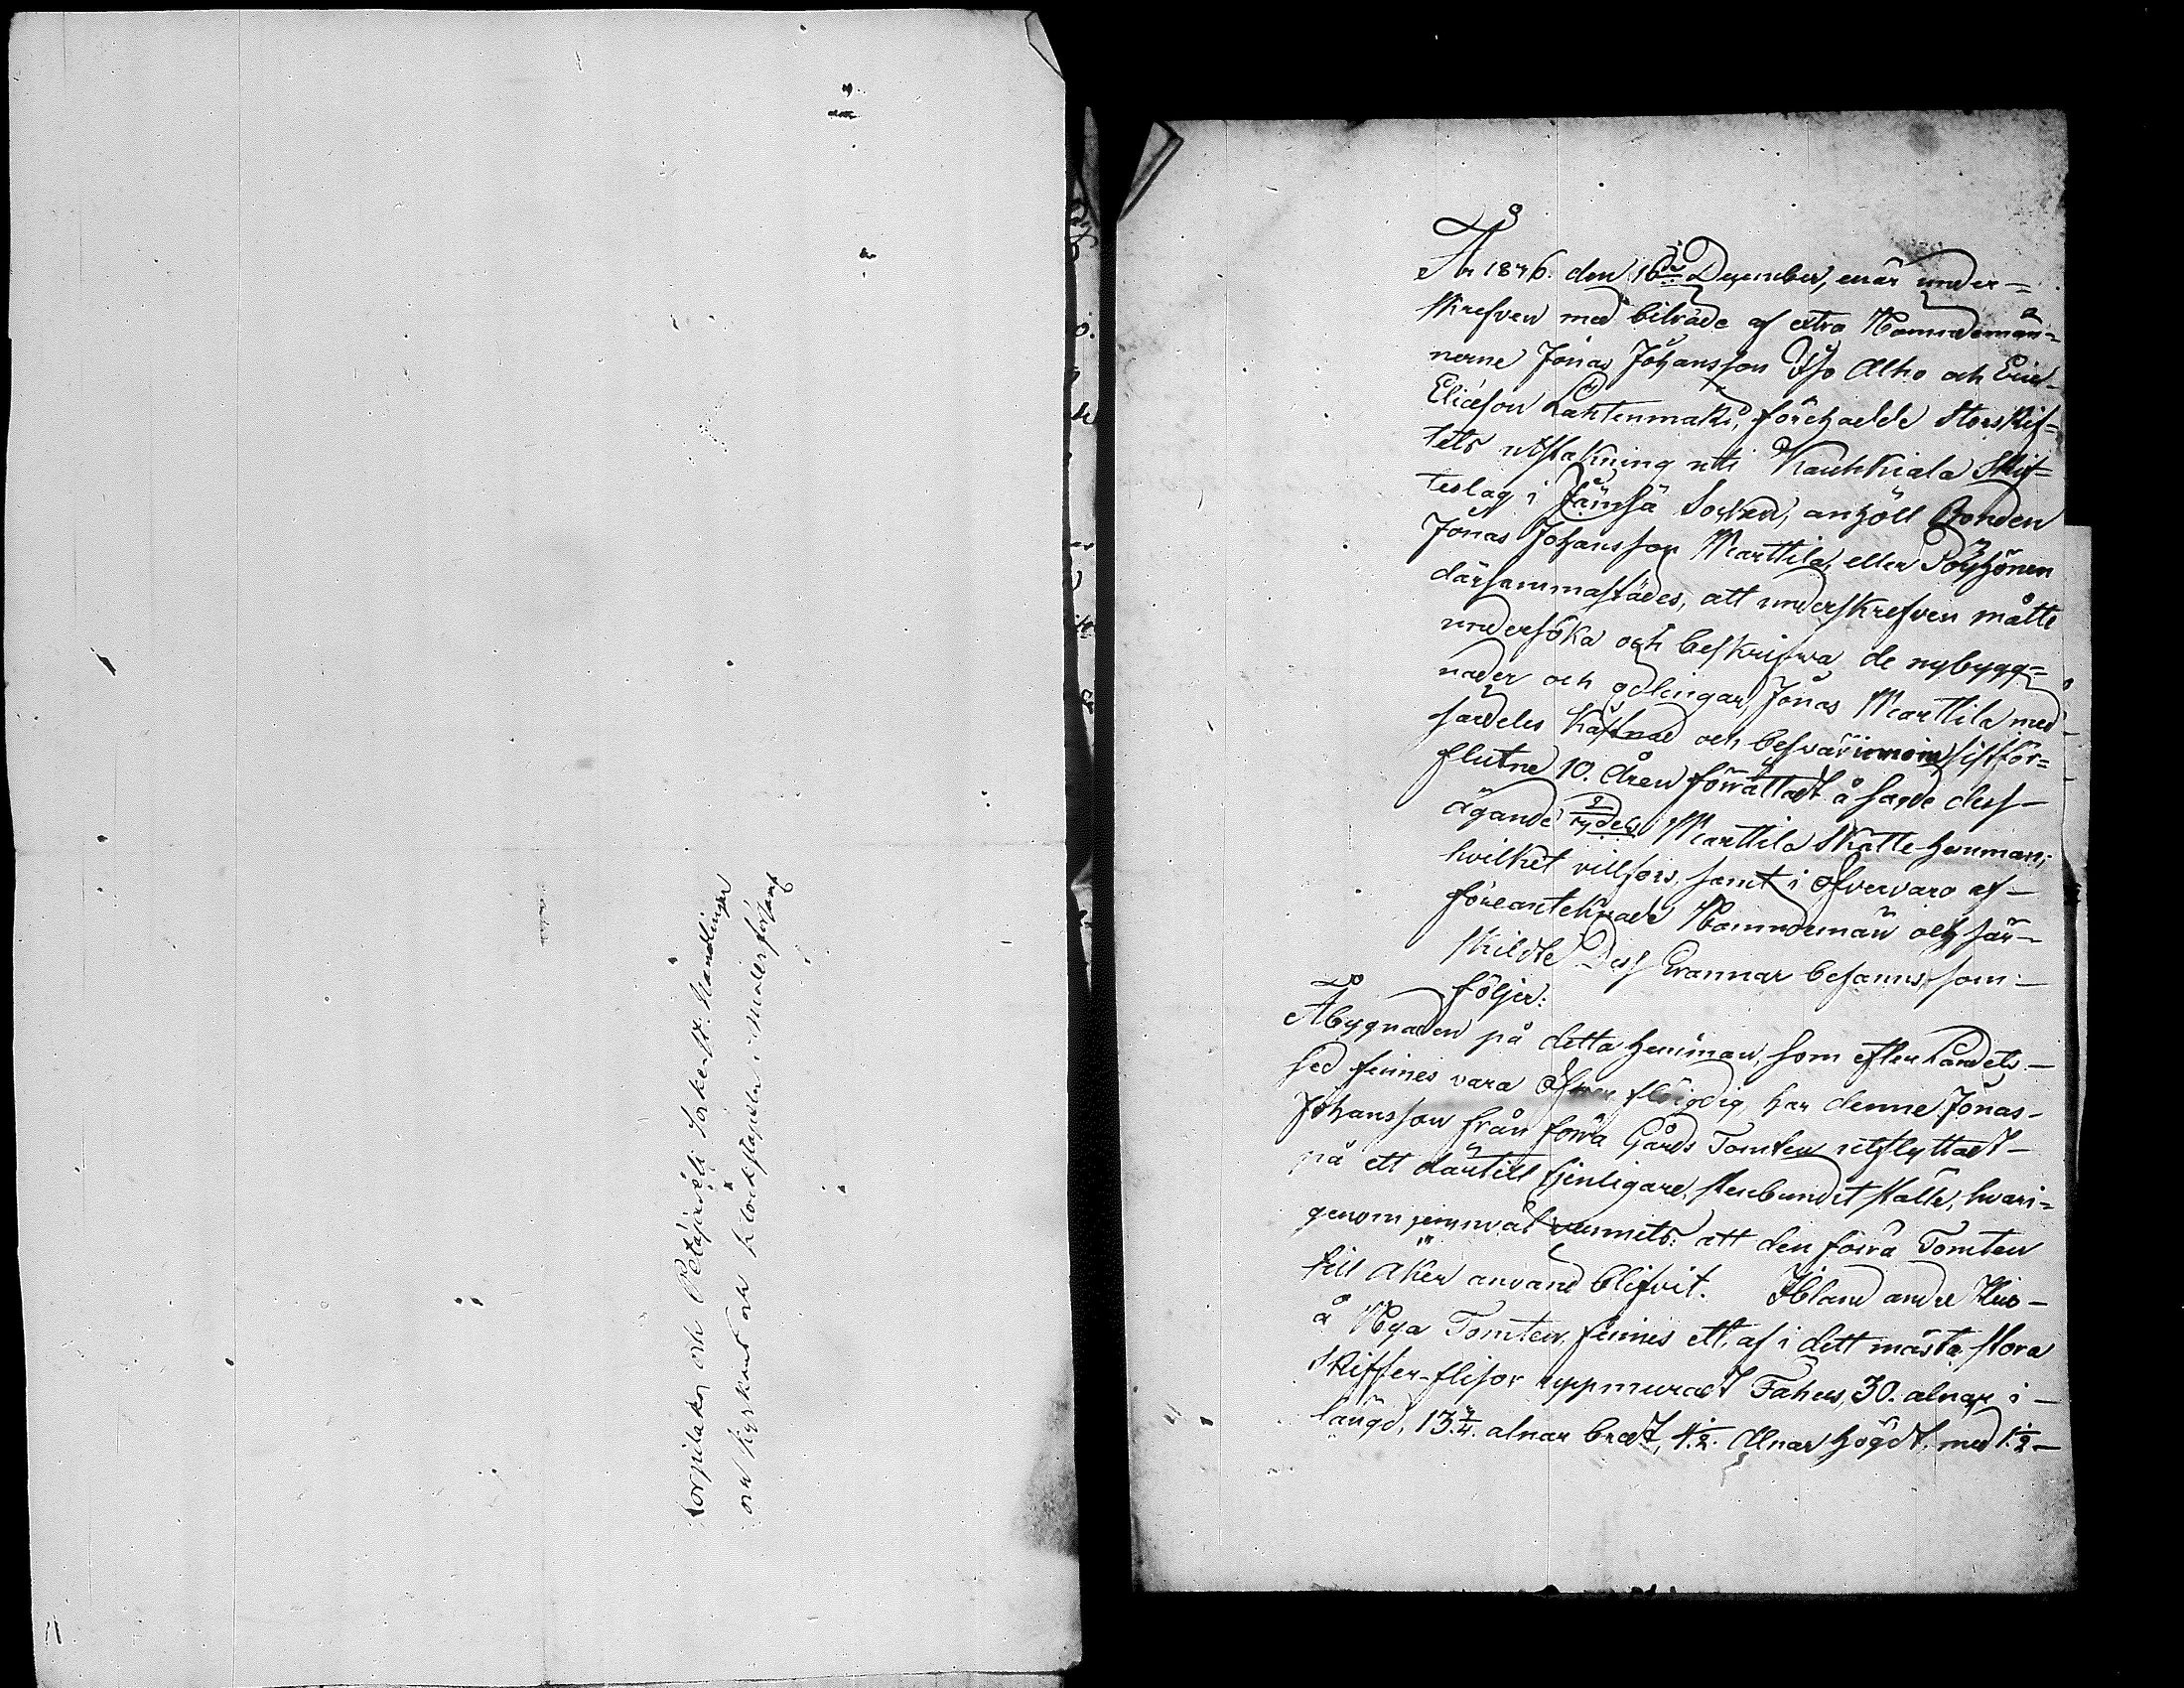 Korpilaks och Petäjävesi Sockenst. Handlingar
om kyrkans och klockstapeln
År 1846. den 16de December, enär under=
skrefven med biträde af extra Nämndemän=
nerne Jonas Johansson Yijo Alho och Eric
Eliæson Lahtenmäki, förehadde Storskif=
tets utstakning uti Kauhkiala Skif=
teslag i Jämsä Socken, anhöll Bonden
Jonas Johansson Marttila, eller Pöyhönen
därsammastädes, att underskrefven måtte
undersöka och beskrifwa de nybygg=
nader och odlingar, Jonas Marttila med
särdeles kåstnad och besvär innom sistför=
flutne 10. åren förrättadt å sade dess
ägande dels Marttila Skatte-hemman;
hvilket villfors, samt i öfvervaro af
föreantecknade Nämndemän och sär-
skildte Dess Grannar befanns, som
följer:
Åbygnaden på detta hemman, som efter Landets
sed finnes vara öfver flödig, har denne Jonas
Johansson från förra Gårds Tomten utflyttadt
på ett dartill tjenligare, stenbundit ställe, hvari=
genom jemnväl vunnits: att den förra Tomten
till Åker använd blifvit. Ibland andre Hus
å Nya Tomten, finnes ett, af i dett mästa stora
Skiffer-flisor uppmuradt Fähus, 30. alnar i
längd, 13 3/4. alnar bredt, 4 1/2. Alnar högdt, med 1 1/2